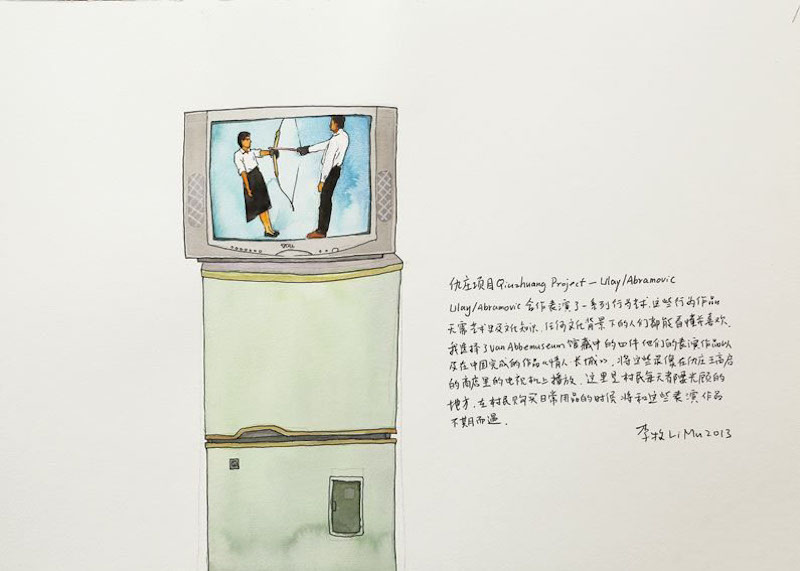 仇庄项目 Qiuzhuang Project — Ulay/Abramovic
Ulay/Abramovic 合作表演了一系列行为艺术.这些行为作品
无需艺术史及文化知识.任何文化背景下的人们都能看懂并喜欢.
我选择了Van Abbemuseum 馆藏中的四件他们的表演作品以
及在中国完成的作品《情人·长城》, 将这些录像在仇庄王高启
的商店里的电视机上播放. 这里是村民每天都要光顾的
地方.在村民购买日常用品的时候将和这些表演作品
不期而遇.
李牧 Li Mu 2013